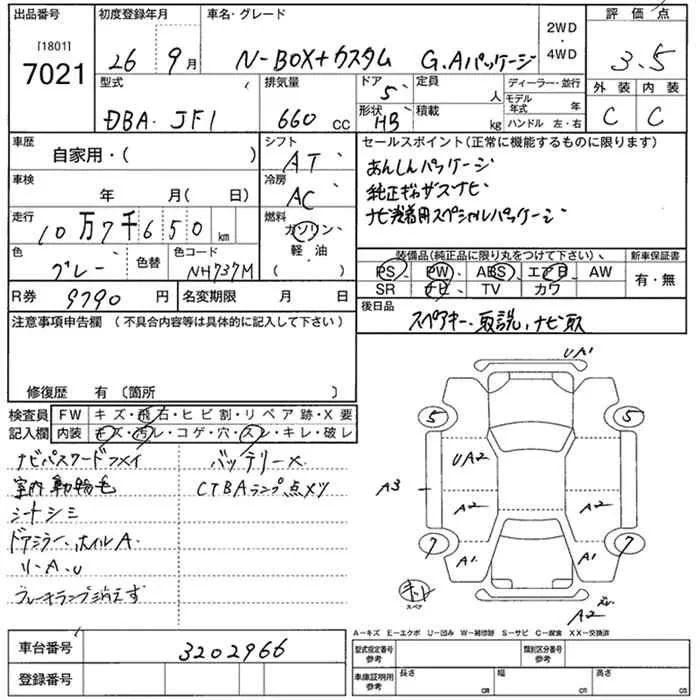 出品番号 初度登録年月 車名・グレード 2WD・4WD 評価点
[1801]
7021 26 9月 N-BOX+カスタム G.Aパッケージ 3.5
型式 排気量 ドア 5 定員 人 ディーラー・並行 外装 内装
DBA・JF1 660 cc 形状 HB 積載 kg モデル年式 年 ハンドル 左・右 C C
車歴 自家用・( ) シフト AT
セールスポイント(正常に機能するものに限ります)
車検 年 月( 日) 冷房 AC
あんしんパッケージ
純正ギャザズナビ
ナビ装着用スペシャルパッケージ
走行 10万7千650km 燃料 ガソリン・軽油( )
色 グレー 色替 色コード NH737M
装備品(純正品に限り丸をつけて下さい) 新車保証書
PS PW ABS エアB AW 有・無
SR ナビ TV カワ
R券 9790円 名変期限 月 日
後日品
スペアキー、取説、ナビ取
注意事項申告欄 (不具合内容等は具体的に記入して下さい)
修復歴 有 (箇所 )
検査員記入欄 FW キズ・飛石・ヒビ割・リペア跡・X要
内装 キズ・汚レ・コゲ・穴・スレ・キレ・破レ
ナビパスワードフメイ バッテリー×
室内動物毛 CTBAランプ点メツ
シートシミ
ドアミラー、ホイルA
リ-A、U
ブレーキランプ消えず
UA1
5 5
UA2
A3 A2 A2
7 A1 A1 7
スペア
A2
A-キズ E-エクボ U-凹み W-補修跡 S-サビ C-腐食 XX-交換済
車台番号 3202966
登録番号
型式指定番号 参考 類別区分番号 参考
車庫証明用 参考 長さ cm 幅 cm 高さ cm